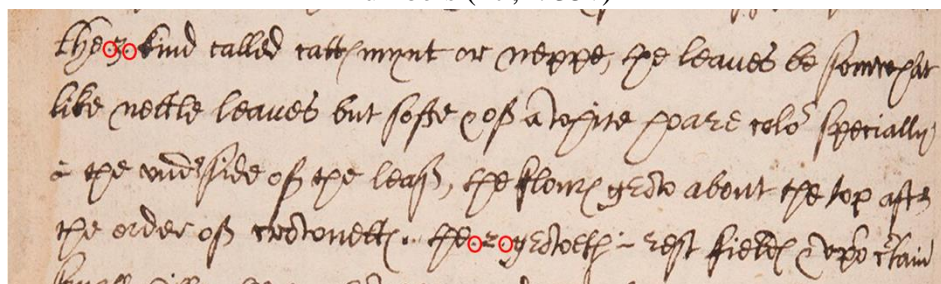 the 3 kind called cattmynt or neppe, the leaues be somewhat
like nettle leaues but softe & of a white hoare colo^r specially
the underside of the leaf, the flours grow about the top aft
the order of crownetts. the 2 groweth in fields & upo certain